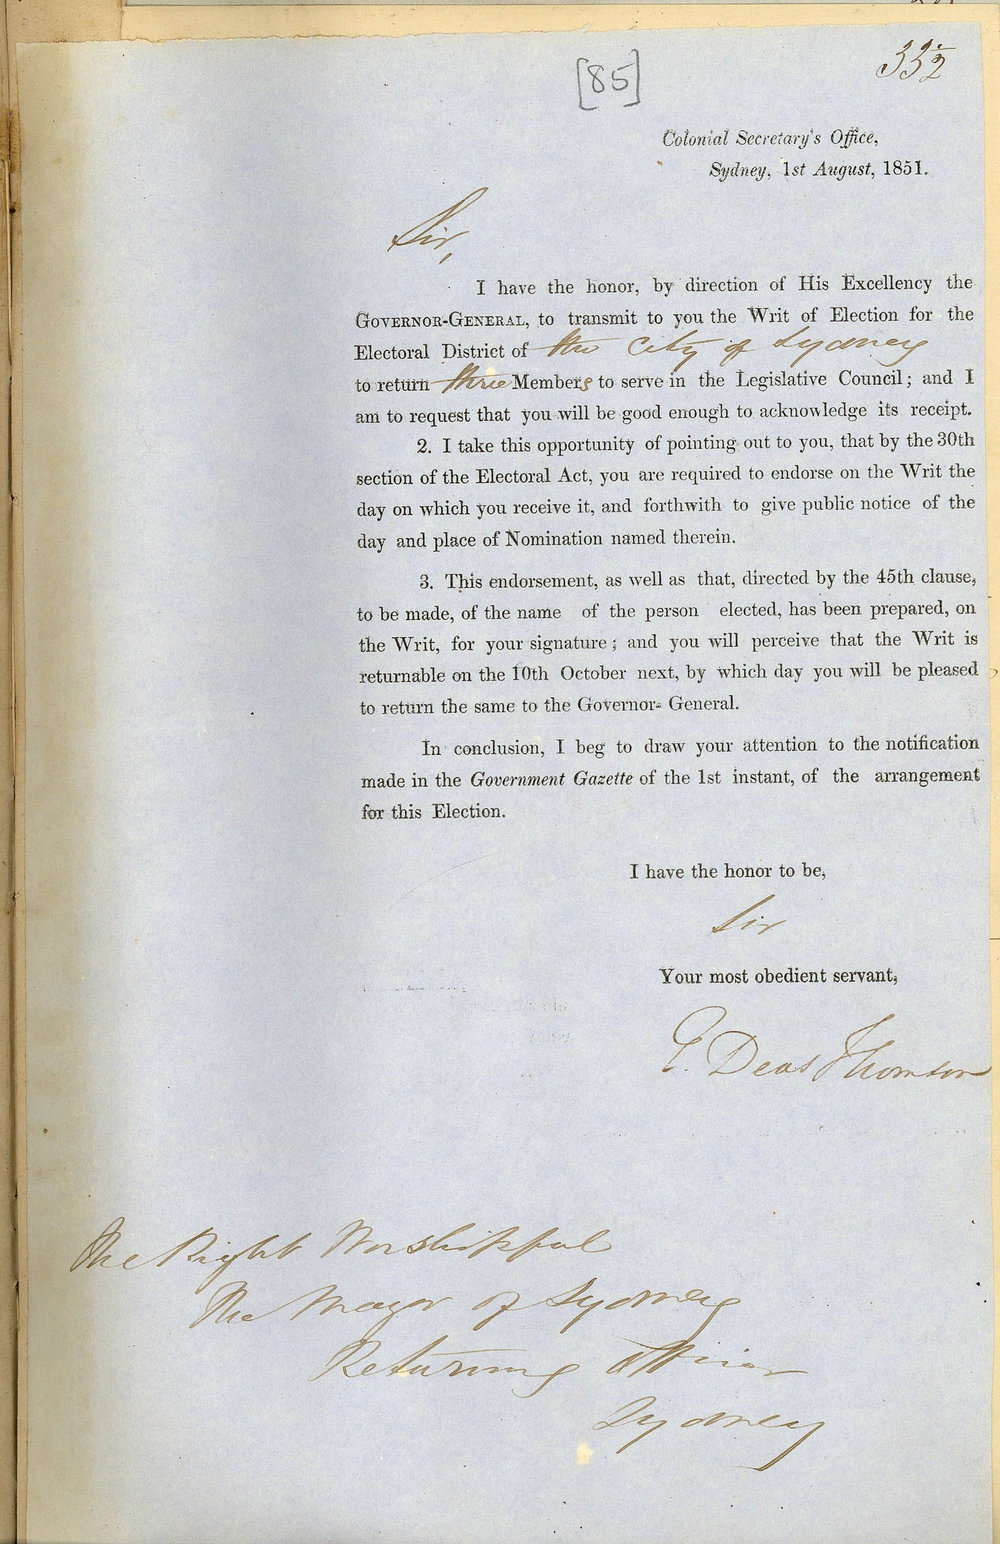 33½
[85]
Colonial Secretary's Office,
Sydney, 1st August, 1851.
Sir,
I have the honor, by direction of His Excellency the
GOVERNOR-GENERAL, to transmit to you the Writ of Election for the
Electoral District of the City of Sydney
to return three Members to serve in the Legislative Council; and I
am to request that you will be good enough to acknowledge its receipt.
2. I take this opportunity of pointing out to you, that by the 30th
section of the Electoral Act, you are required to endorse on the Writ the
day on which you receive it, and forthwith to give public notice of the
day and place of Nomination named therein.
3. This endorsement, as well as that, directed by the 45th clause,
to be made, of the name of the person elected, has been prepared, on
the Writ, for your signature; and you will perceive that the Writ is
returnable on the 10th October next, by which day you will be pleased
to return the same to the Governor-General.
In conclusion, I beg to draw your attention to the notification
made in the Government Gazette of the 1st instant, of the arrangement
for this Election.
I have the honor to be,
Sir
Your most obedient servant,
E. Deas Thomson
The Right Worshipful
The Mayor of Sydney
Returning Officer
Sydney